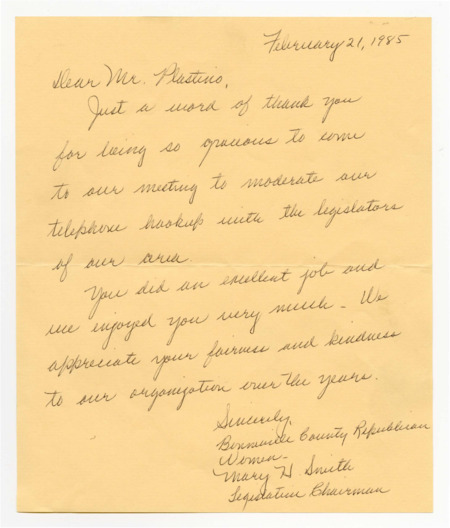 February 21, 1985
Dear Mr. Plastino,
Just a word of thank you
for being so gracious to come
to our meeting to moderate our
telephone hookup with the legislators
of our area.
You did an excellent job and
we enjoyed you very much - We
appreciate your fairness and kindness
to our organization over the years.
Sincerely,
Bonneville County Republican
Women -
Mary H. Smith
Legislative Chairman